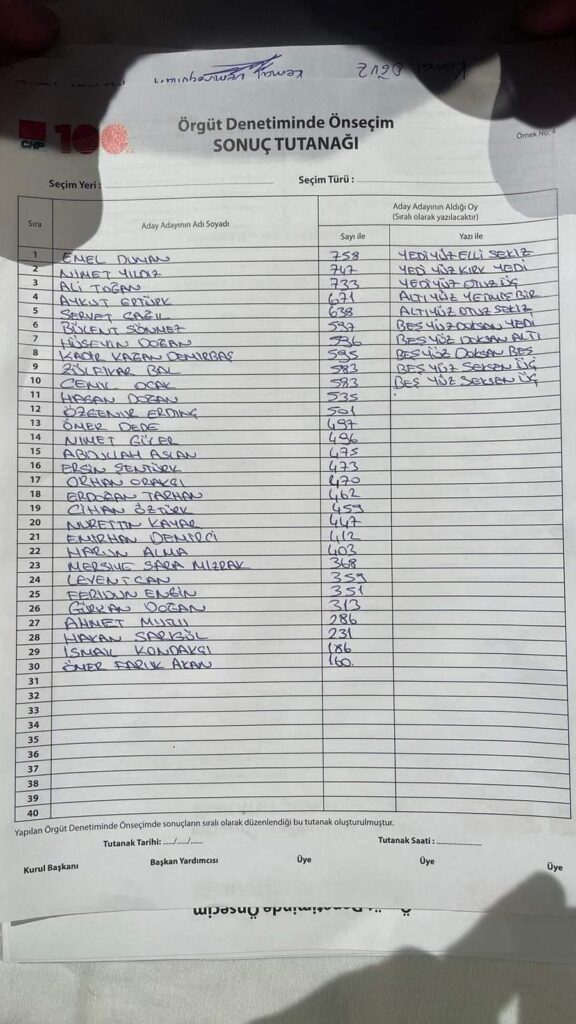 Kemal OĞUZ
CHP 100
Örgüt Denetiminde Önseçim
SONUÇ TUTANAĞI
Örnek No: 4
Seçim Yeri :
Seçim Türü :
Sıra Aday Adayının Adı Soyadı Aday Adayının Aldığı Oy
(Sıralı olarak yazılacaktır)
Sayı ile Yazı ile
1 EMEL DUMAN 758 YEDİYÜZ ELLİ SEKİZ
2 NİMET YILDIZ 747 YEDİ YÜZ KIRK YEDİ
3 ALİ TOĞAN 733 YEDİYÜZ OTUZ ÜÇ
4 AYKUT ERTÜRK 671 ALTIYÜZ YETMİŞ BİR
5 SERVET ÇAĞIL 638 ALTIYÜZ OTUZ SEKİZ
6 BÜLENT SÖNMEZ 597 BEŞ YÜZ DOKSAN YEDİ
7 HÜSEYİN DOĞAN 596 BEŞ YÜZ DOKSAN ALTI
8 KADİR KAĞAN DEMİRBAŞ 595 BEŞ YÜZ DOKSAN BEŞ
9 ZÜLFİKAR BAL 583 BEŞ YÜZ SEKSEN ÜÇ
10 CEMİL OCAK 583 BEŞ YÜZ SEKSEN ÜÇ
11 HASAN DOĞAN 535
12 ÖZGENUR ERDİNÇ 501
13 ÖMER DEDE 497
14 NİMET GÜLER 496
15 ABDULLAH ASLAN 475
16 ERSİN ŞENTÜRK 473
17 ORHAN ORAKÇI 470
18 ERDOĞAN TARHAN 462
19 CİHAN ÖZTÜRK 459
20 NURETTİN KAYAR 447
21 EMİRHAN DEMİRCİ 412
22 HARUN ALMA 403
23 MERSİYE SARA MIZRAK 368
24 LEVENT CAN 359
25 FERİDUN ENGİN 351
26 GÜRKAN DOĞAN 313
27 AHMET MUTLU 286
28 HAKAN SARIGÖL 231
29 İSMAİL KONDAKÇI 186
30 ÖMER FARUK AKAN 160
31
32
33
34
35
36
37
38
39
40
Yapılan Örgüt Denetiminde Önseçimde sonuçların sıralı olarak düzenlendiği bu tutanak oluşturulmuştur.
Tutanak Tarihi: ...../...../...... Tutanak Saati : ......................
Kurul Başkanı Başkan Yardımcısı Üye Üye Üye
Örgüt Denetiminde Önseçim